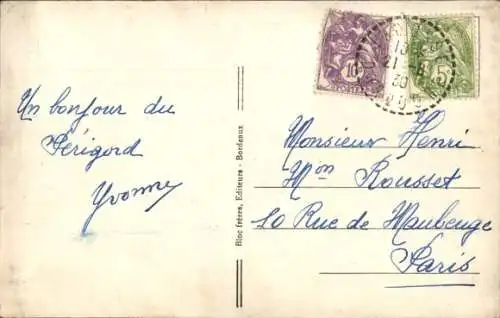 Un bonjour du
Périgord
Yvonne
Bloc frères, Editeurs - Bordeaux
10
POSTES
13
21 -8
30
5
Monsieur Henri
Mon Rousset
10 Rue de Maubeuge
Paris